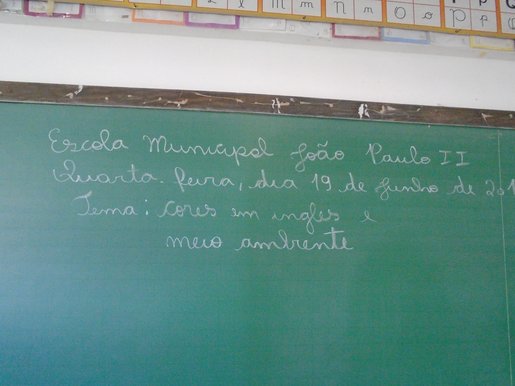 m n O o p
Escola Municipal João Paulo II
Quarta-feira, dia 19 de Junho de 201
Tema: cores em ingles e
meio ambiente